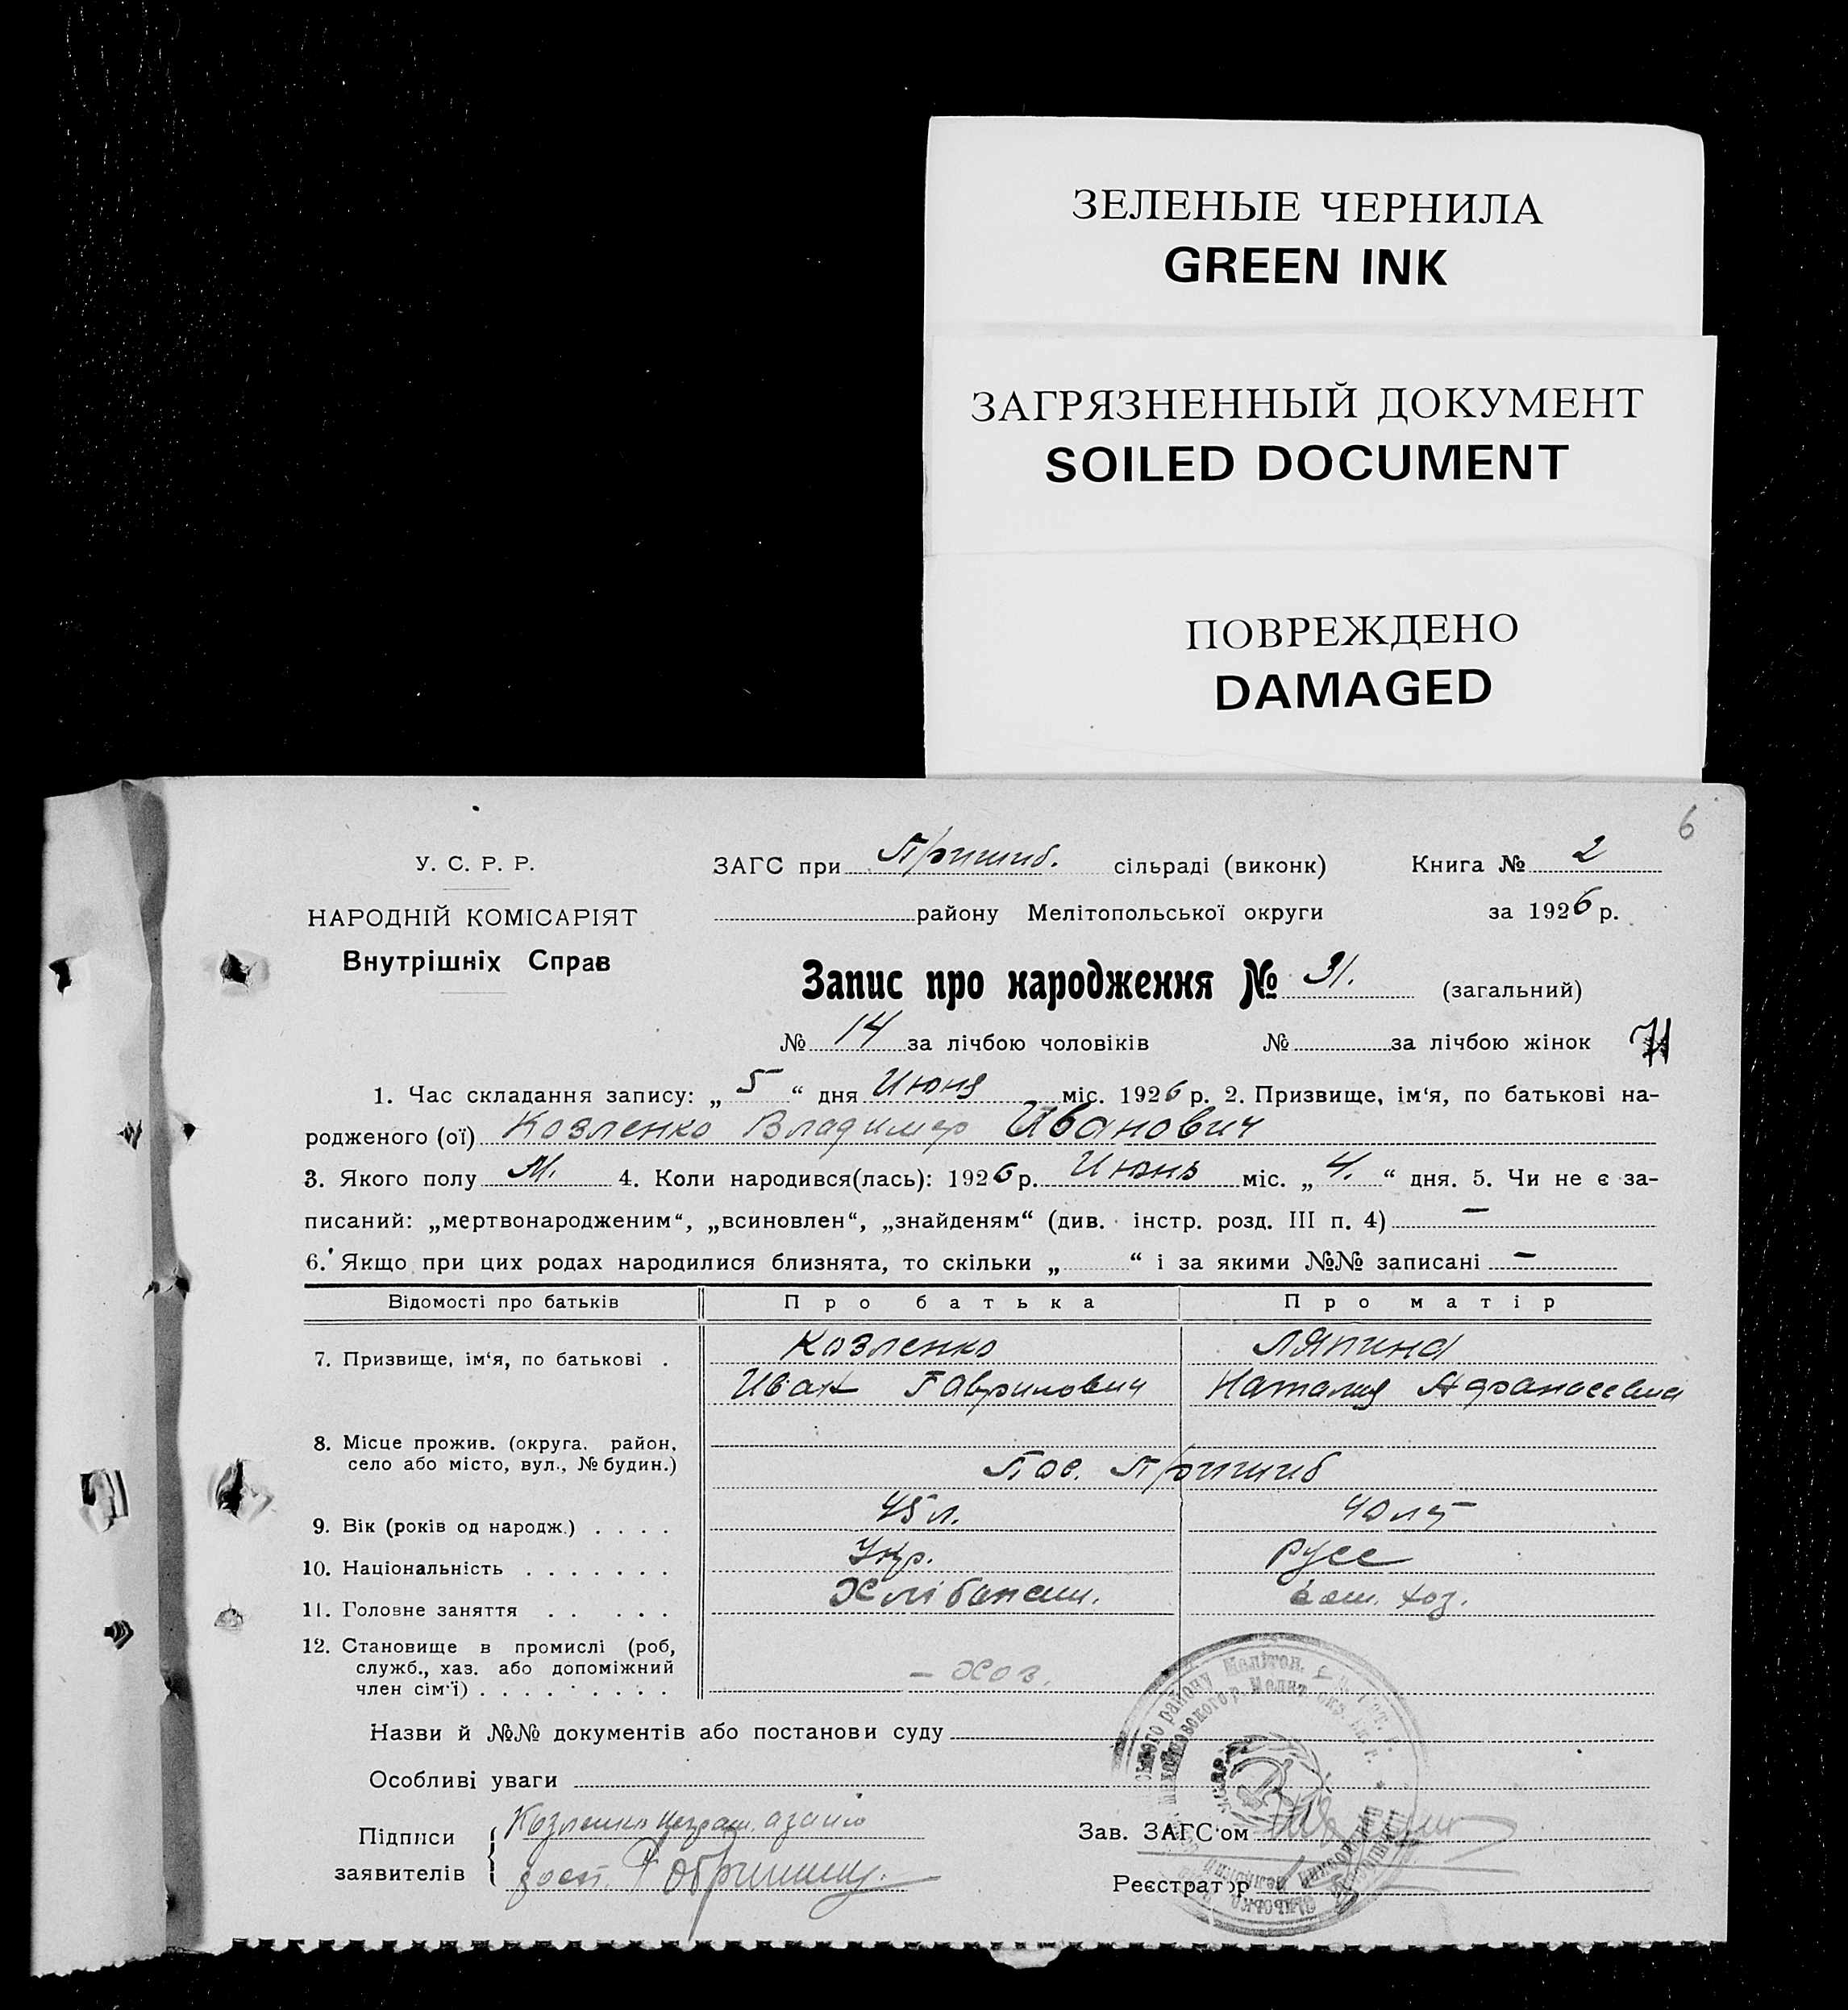 ЗЕЛЕНЫЕ ЧЕРНИЛА
GREEN INK
ЗАГРЯЗНЕННЫЙ ДОКУМЕНТ
SOILED DOCUMENT
ПОВРЕЖДЕНО
DAMAGED
6
У. С. Р. Р.
НАРОДНІЙ КОМІСАРІЯТ
Внутрішніх Справ
ЗАГС при Пришиб. сільраді (виконк) Книга № 2
району Мелітопольської округи за 1926 р.
Запис про народження № 31. (загальний)
№ 14 за лічбою чоловіків № за лічбою жінок
1. Час складання запису: „ 5 “ дня Июня міс. 1926 р. 2. Призвище, ім‘я, по батькові на-
родженого (ої) Козленко Владимир Иванович
3. Якого полу М. 4. Коли народився(лась): 1926 р. Июнь міс. „ 4. “ дня. 5. Чи не є за-
писаний: „мертвонародженим“, „всиновлен“, „знайденям“ (див. інстр. розд. III п. 4) —
6. Якщо при цих родах народилися близнята, то скільки „ “ і за якими №№ записані —
Відомості про батьків Про батька Про матір
7. Призвище, ім‘я, по батькові . Козленко Ляпина
Иван Гаврилович Наталия Афанасевна
8. Місце прожив. (округа, район,
село або місто, вул., № будин.) Пос. Пришиб
9. Вік (років од народж.) . . . . 45 л. 40 лт
10. Національність . . . . . . . Укр. Русс
11. Головне заняття . . . . . . Хлібопаш. дом. хоз.
12. Становище в промислі (роб,
служб., хаз. або допоміжний
член сім‘ї) . . . . . . . . . — Хоз.
Назви й №№ документів або постанови суду
Особливі уваги
Підписи
заявителів
Козленко неграм. а за него
Зав. ЗАГС‘ом
Реєстратор